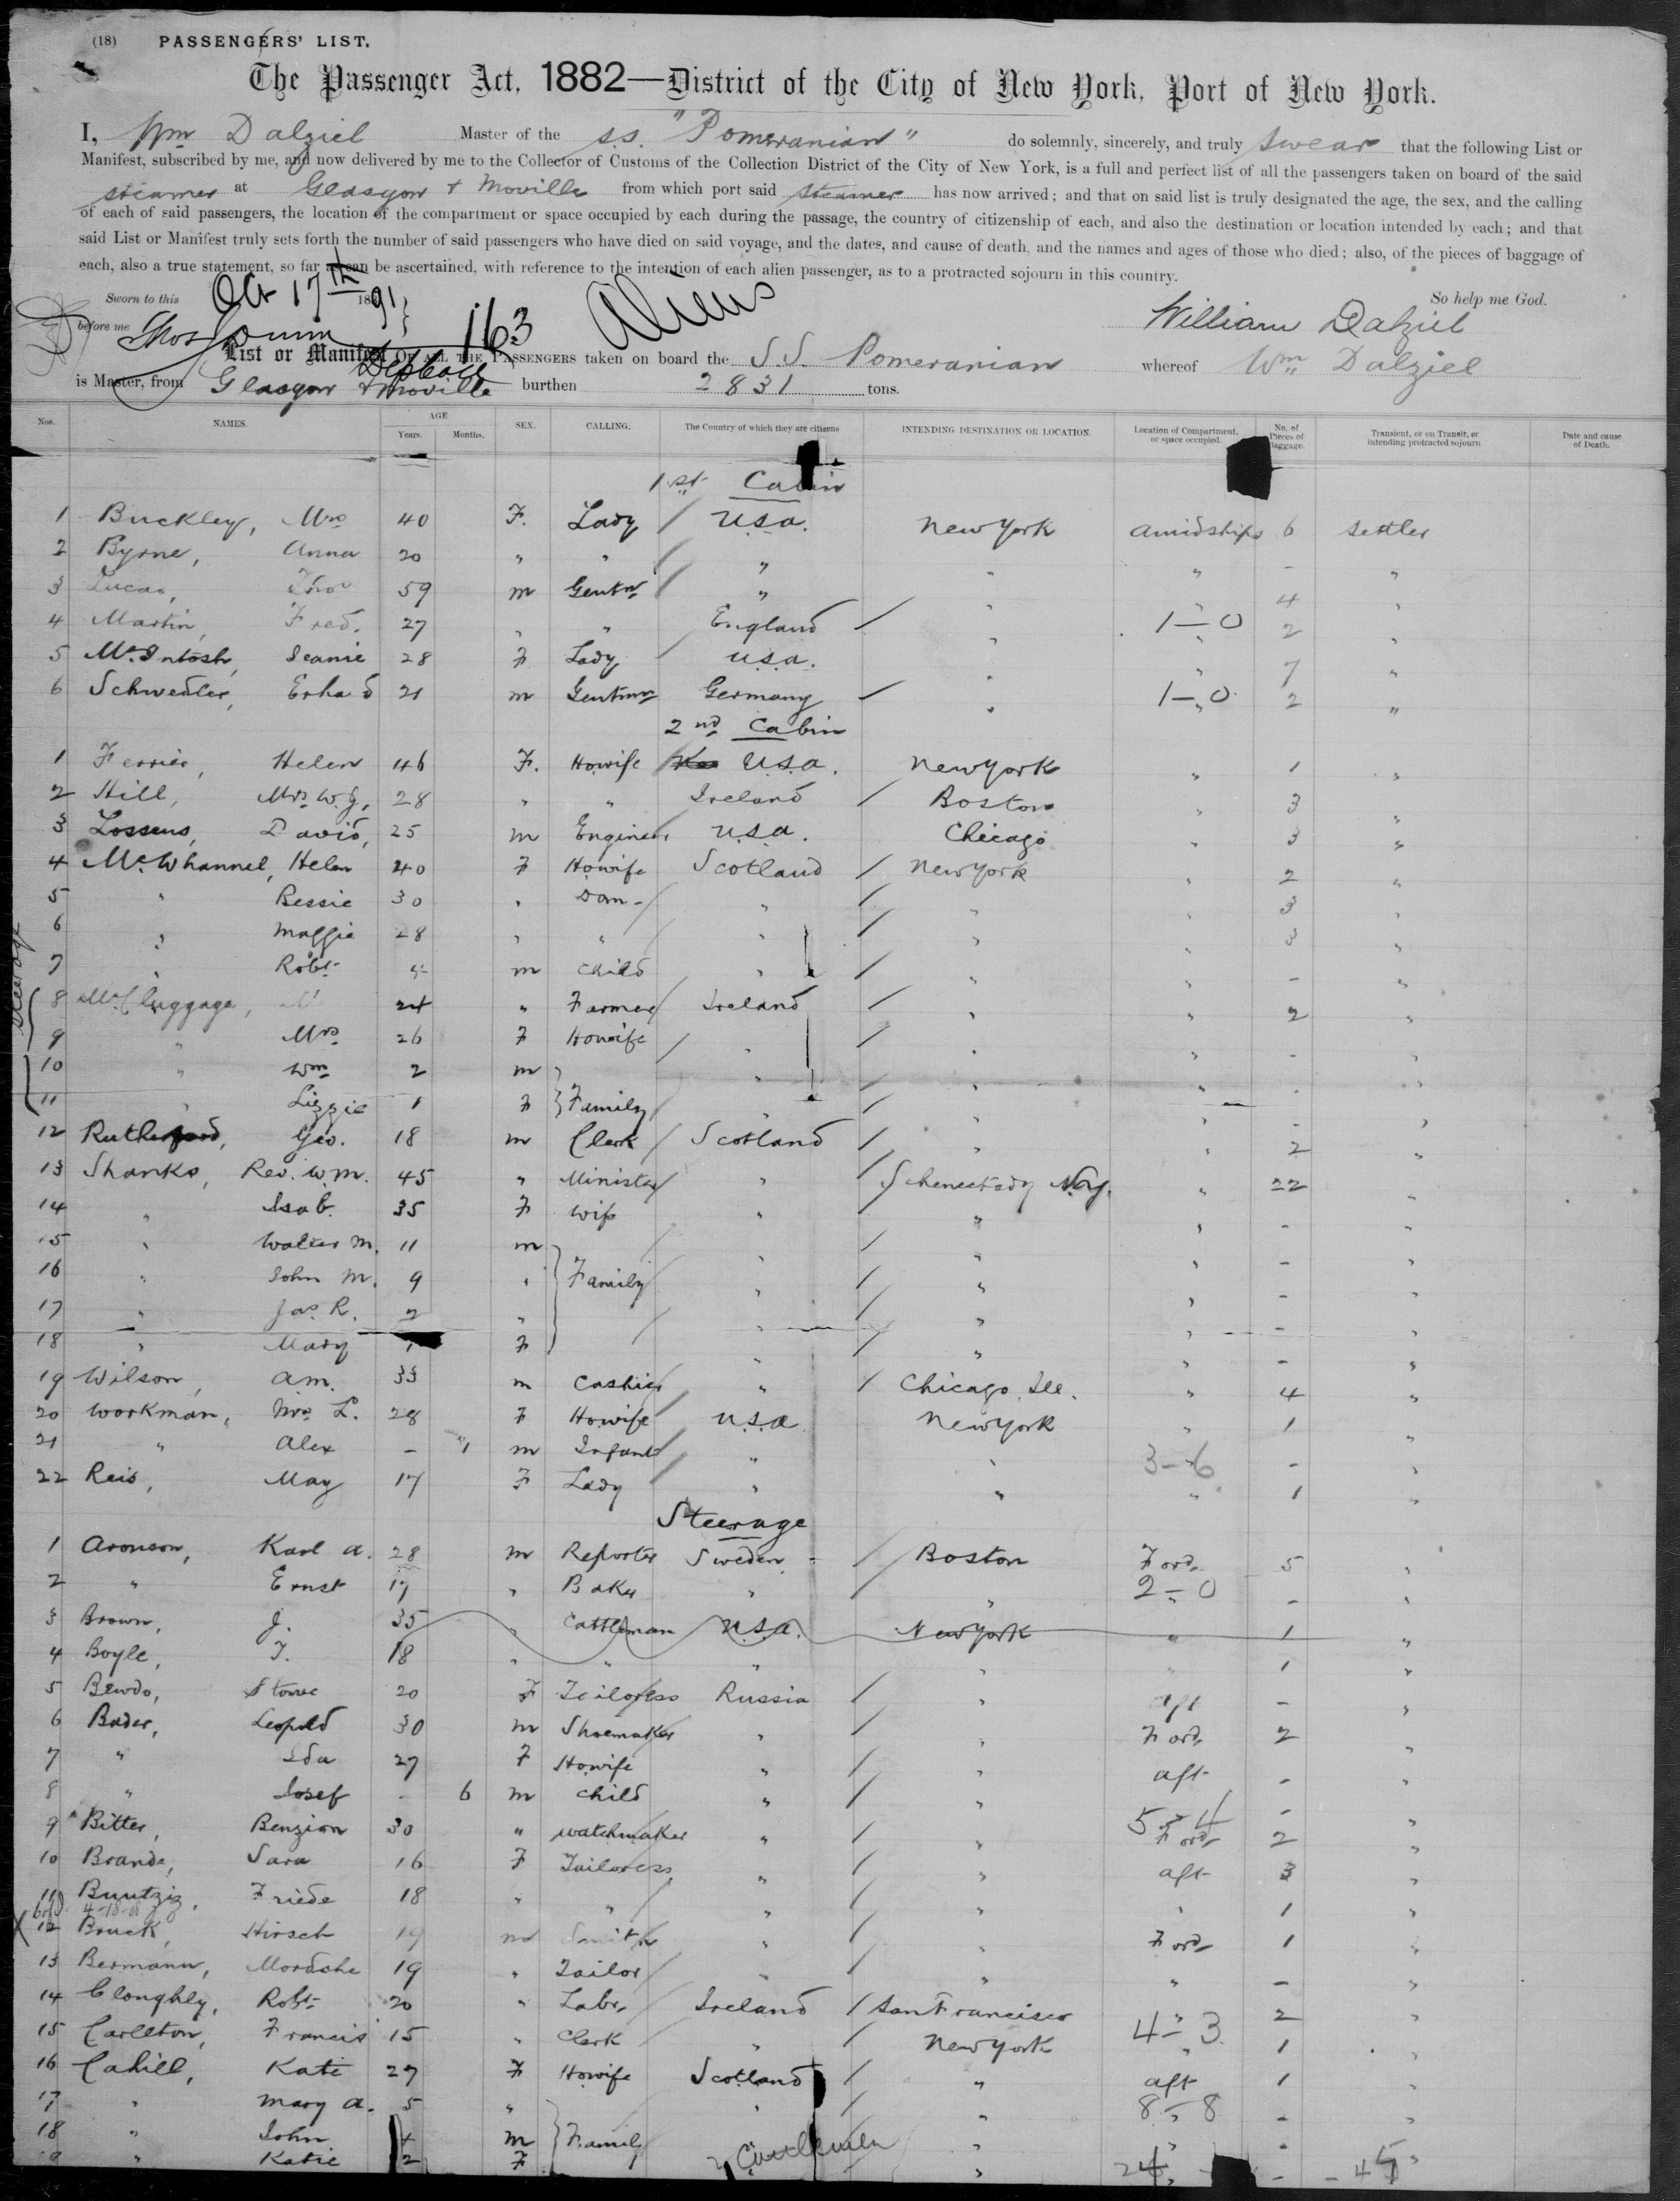 (18) PASSENGERS' LIST.
The Passenger Act, 1882—District of the City of New York, Port of New York.
I, Wm Dalziel Master of the SS. "Pomeranian" do solemnly, sincerely, and truly swear that the following List or
Manifest, subscribed by me, and now delivered by me to the Collector of Customs of the Collection District of the City of New York, is a full and perfect list of all the passengers taken on board of the said
steamer at Glasgow + Moville from which port said steamer has now arrived; and that on said list is truly designated the age, the sex, and the calling
of each of said passengers, the location of the compartment or space occupied by each during the passage, the country of citizenship of each, and also the destination or location intended by each; and that
said List or Manifest truly sets forth the number of said passengers who have died on said voyage, and the dates, and cause of death, and the names and ages of those who died; also, of the pieces of baggage of
each, also a true statement, so far as can be ascertained, with reference to the intention of each alien passenger, as to a protracted sojourn in this country.
Sworn to this Oct 17th 1891 So help me God.
before me Thos 163 Aliens William Dalziel
List or Manifest OF ALL THE PASSENGERS taken on board the S.S. Pomeranian whereof Wm Dalziel
is Master, from Glasgow + Moville burthen 2831 tons.
Nos. NAMES. AGE Years. Months. SEX. CALLING. The Country of which they are citizens INTENDING DESTINATION OR LOCATION. Location of Compartment, or space occupied. No. of Pieces of Baggage. Transient, or on Transit, or intending protracted sojourn Date and cause of Death.
1st Cabin
1 Buckley, Mrs 40 F. Lady / U.S.a. New York amidships 6 settler
2 Byrne, Anna 20 " " / " " " - "
3 Lucas, Thos 59 m Gentn / " " " 4 "
4 Martin, Fred. 27 " " England / " 1-0 2 "
5 McIntosh, Jeanie 28 F Lady / U.S.a. " " 7 "
6 Schwedler, Erhard 21 m Gentmn Germany / " 1-0 2 "
2nd Cabin
1 Ferrier, Helen 46 F. Howife / U.S.a. New York " 1 "
2 Hill, Mrs W.J. 28 " " Ireland / Boston " 3 "
3 Lossens, David, 25 m Engineer U.S.a. Chicago " 3 "
4 McWhannel, Helen 40 F Howife Scotland / New York " 2 "
5 " Bessie 30 " Dom- / " / " " 3 "
6 " Maggie 28 " " / " / " " 3 "
7 " Robt m child " / " " - "
8 McCluggage, Mr 24 " Farmer / Ireland / " " 2 "
9 " Mrs 26 F Howife / " / " " - "
10 " Wm 2 m " / " " - "
11 " Lizzie 1 F } Family " / " " - "
12 Rutherford, Geo. 18 m Clerk / Scotland / " " 2 "
13 Shanks, Rev. W.m. 45 " Minister / " / Schenectady N.y. " 22 "
14 " Isab. 35 F Wife " " " - "
15 " Walter M. 11 m / " / " " - "
16 " John M. 9 " } Family / " / " " - "
17 " Jas R. " " / " " - "
18 " Mary F / " / " " - "
19 Wilson, a.m. 33 m Cashier " / Chicago Ill. " 4 "
20 Workman, Mrs L. 28 F Howife / U.S.a New York " 1 "
21 " Alex - 1 m Infant / " " 3-6 - "
22 Reid, May 17 F Lady / " " " 1 "
Steerage
1 Aronson, Karl a. 28 m Reporter Sweden / Boston Ford. 5 "
2 " Ernst 17 " Baker " " 2-0 - "
3 Brown, J. 35 " Cattleman U.S.a. New York " 1 "
4 Boyle, T. 18 " " " " " 1 "
5 Bewdo, 20 F Tailoress Russia / " aft - "
6 Bader, Leopold 30 m Shoemaker " / " Ford. 2 "
7 " Ida 27 F Howife " / " aft - "
8 " Josef - 6 m child " / " - "
9 Bitter, Benzion 30 " watchmaker " / " 5-4 Ford 2 "
10 Brande, Sara 16 F Tailoress " / " aft 3 "
11 Buntzig, Friede 18 " " / " / " " 1 "
12 Bruck, Hirsch 19 m Smith " / " Ford 1 "
13 Bermann, Mordche 19 " Tailor / " / " " - "
14 Cloughly, Robt 20 " Labr. / Ireland / San Francisco " 2 "
15 Carleton, Francis 15 " Clerk " / New York 4-3 1 "
16 Cahill, Kate 27 F Howife Scotland / " aft 1 "
17 " Mary a. 5 " " / " 8-8 - "
18 " John 4 m } Family " "
19 " Katie 2 F 2 Cattlemen " 24 - - 45 "